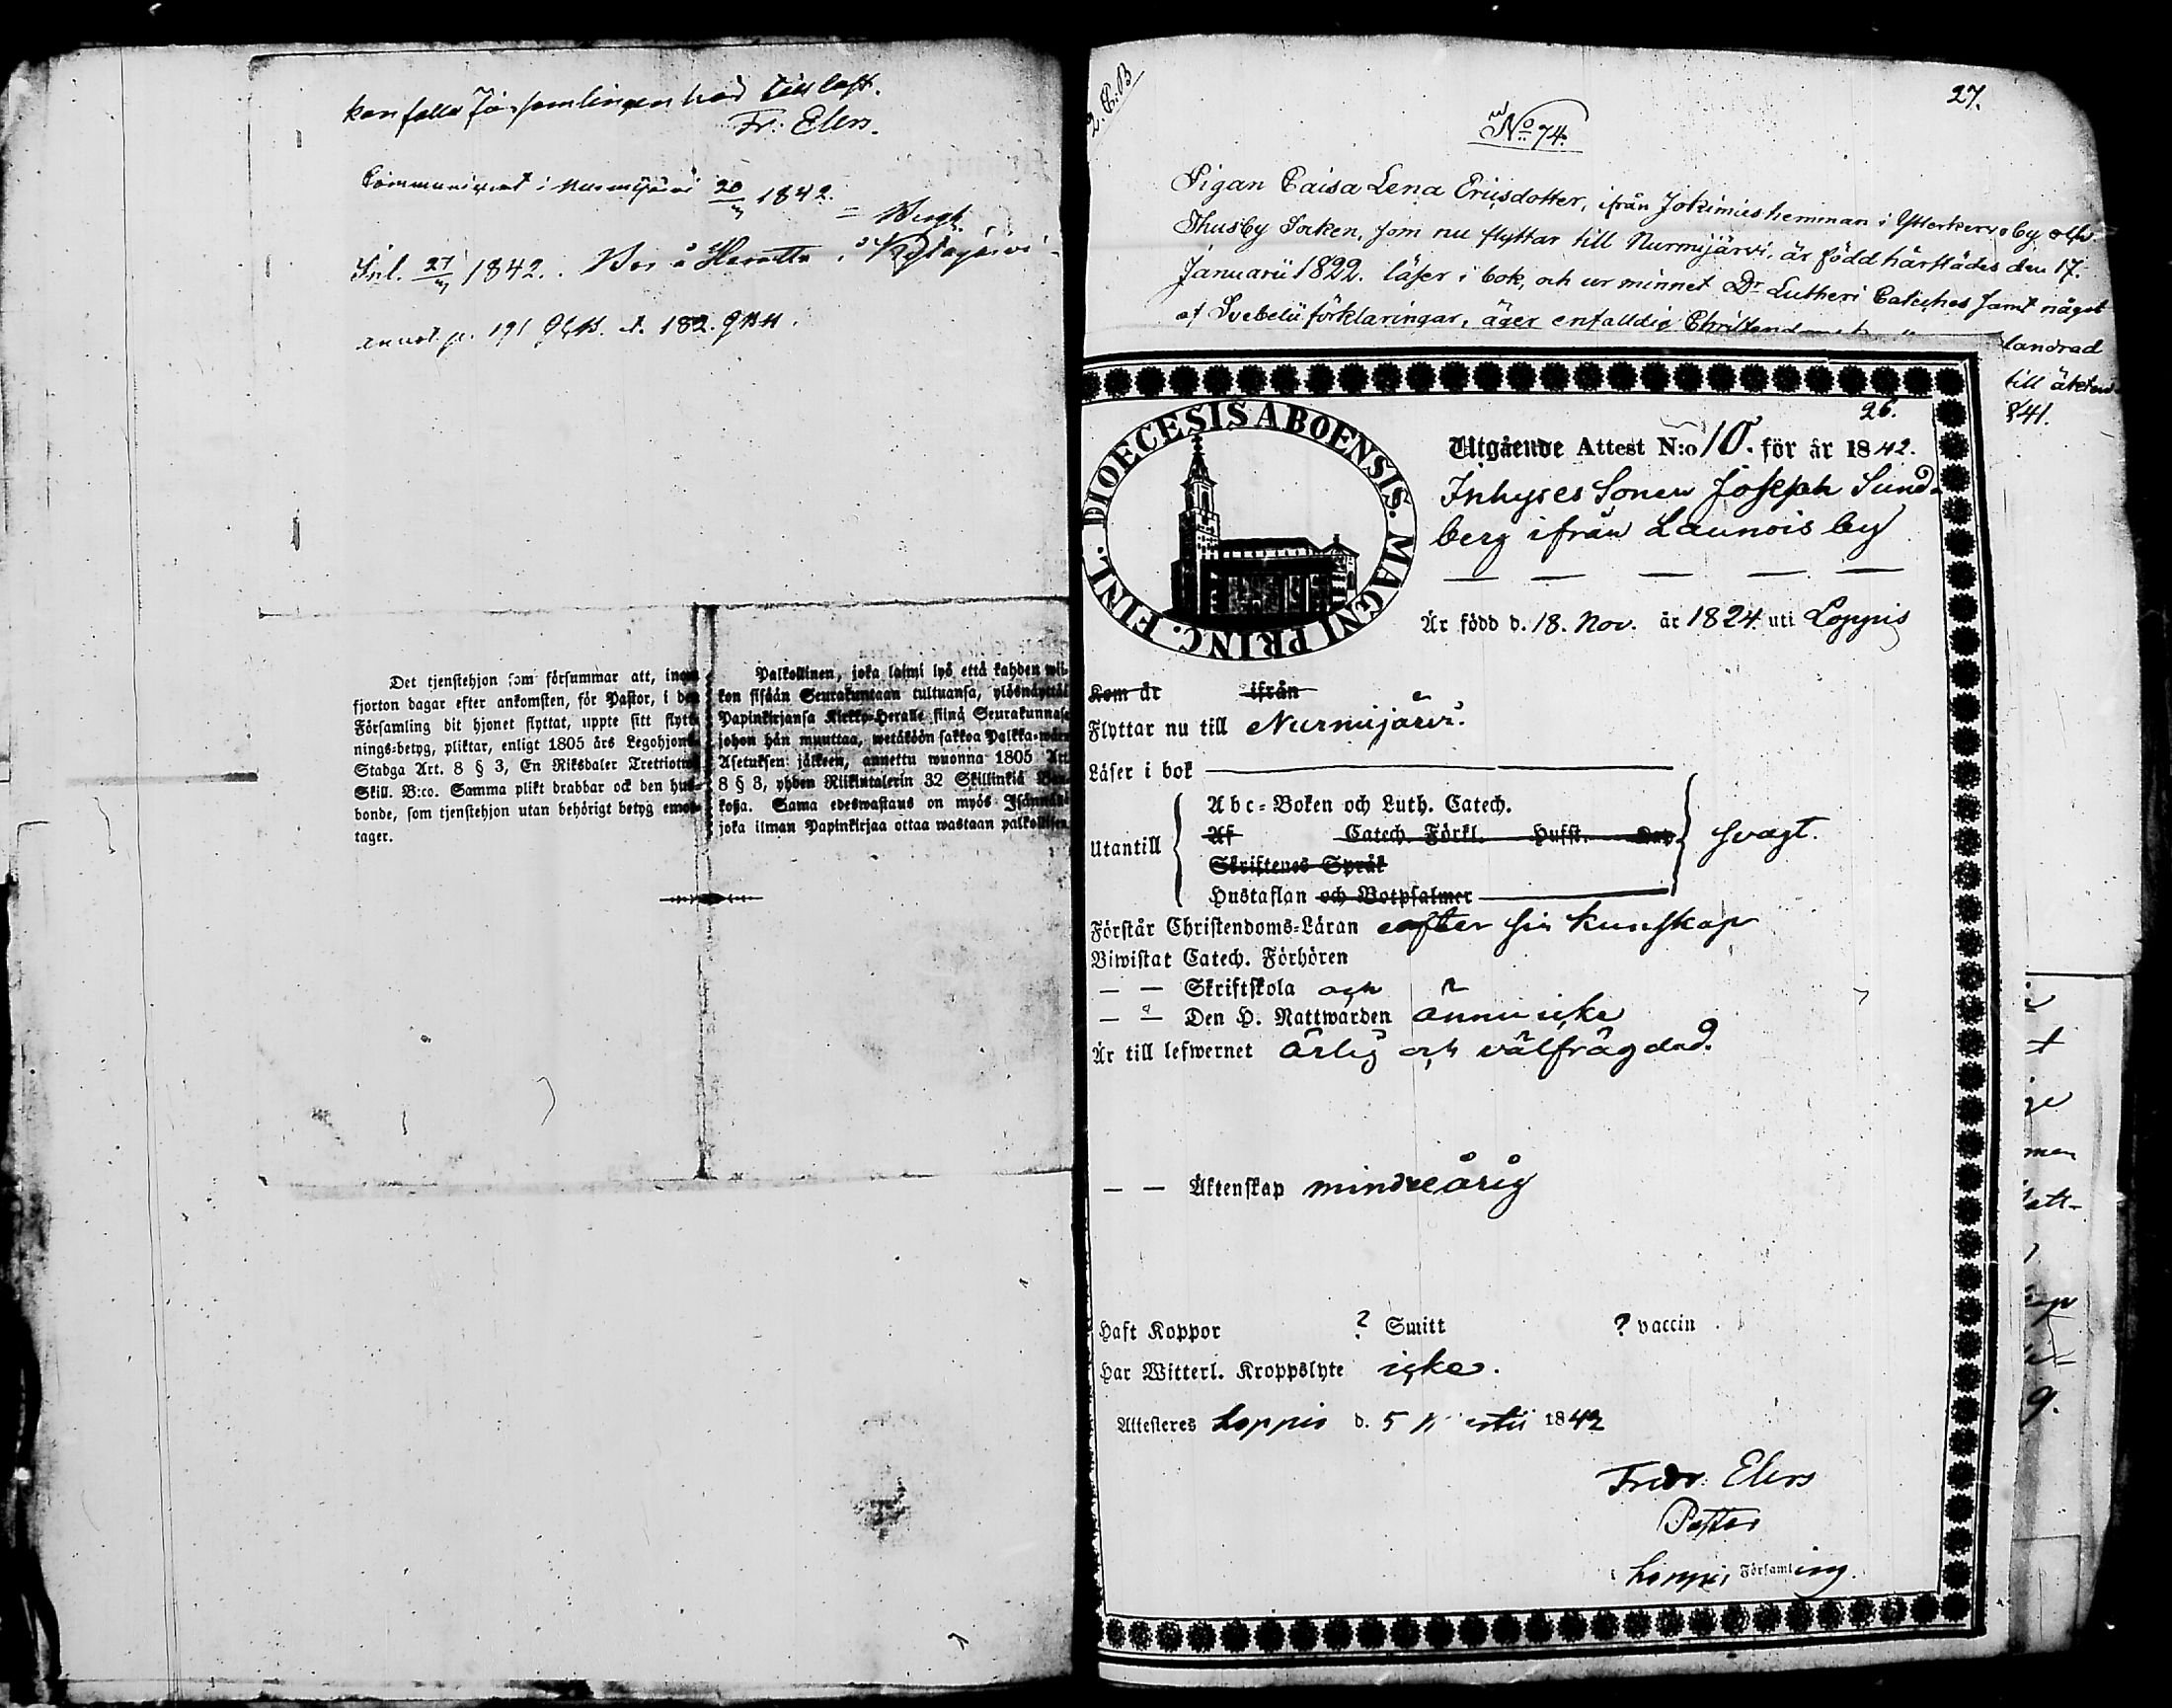 kan falla församlingen häd till last.
Fr: Elers.
Communicerat i Nurmijärvi 20/3 1842.
= Bergh.
Inl. 27/3 1842. Bor å i
annot. p. 191 t. 182.
Det tjenstehjon som försummar att, inom
fjorton dagar efter ankomsten, för Pastor, i den
Församling dit hjonet flyttat, uppte sitt flytt-
nings-betyg, pliktar, enligt 1805 års Legohjons
Stadga Art. 8 § 3, En Riksdaler Trettiotvå
Skill. B:co. Samma plikt drabbar ock den hus-
bonde, som tjenstehjon utan behörigt betyg emot-
tager.
Palkollinen, joka laimi lyö että kahden wii-
kon sisään Seurakuntaan tultuansa, ylösnäyttää
Papinkirjansa Kirkko-Herralle siinä Seurakunnasa
johon hän muuttaa, wetäköön sakkoa Palkka-
Asetuksen jälkeen, annettu wuonna 1805 Art
8 § 3, yhden Riikintalerin 32 Skillinkiä Ban-
kossa. Sama edeswastaus on myös Isännällä
joka ilman Papinkirjaa ottaa wastaan palkollisen
2. C.B
27.
No 74.
Pigan Caisa Lena Ericsdotter, ifrån Jokimies hemman i Ytterkervo by och
Thusby Socken, som nu flyttar till Nurmijärvi, är född härstädes den 17.
Januarii 1822. läser i bok, och ur minnet Dr Lutheri Cateches samt något
af Svebelii förklaringar, äger enfalldig
landrad
till äkten-
841.
26.
DIOECESIS ABOENSIS. MAGNI PRINC. FINL.
Utgående Attest N:o 10. för år 1842.
Inhyses Sonen Joseph Sund-
berg ifrån Launois by
Är född d. 18. Nov. år 1824 uti Loppis
Kom år ifrån
Flyttar nu till Nurmijärvi.
Läser i bok
Abc-Boken och Luth. Catech.
Utantill Af Catech. Förkl. Husst. Dav. svagt.
Skriftenes Språk
Hustaflan och Botpsalmer
Förstår Christendoms-Läran efter sin kunskap
Biwistat Catech. Förhören
— — Skriftskola och
— — Den H. Nattwarden ännu icke
Är till lefwernet ärlig och välfrägdad.
— — Äktenskap mindreårig
Haft Koppor ? Smitt ? vaccin
Har Witterl. Kroppslyte icke.
Attesteres Loppis d. 5 1842
Fredr. Elers
Pastor
i Loppis Församling.